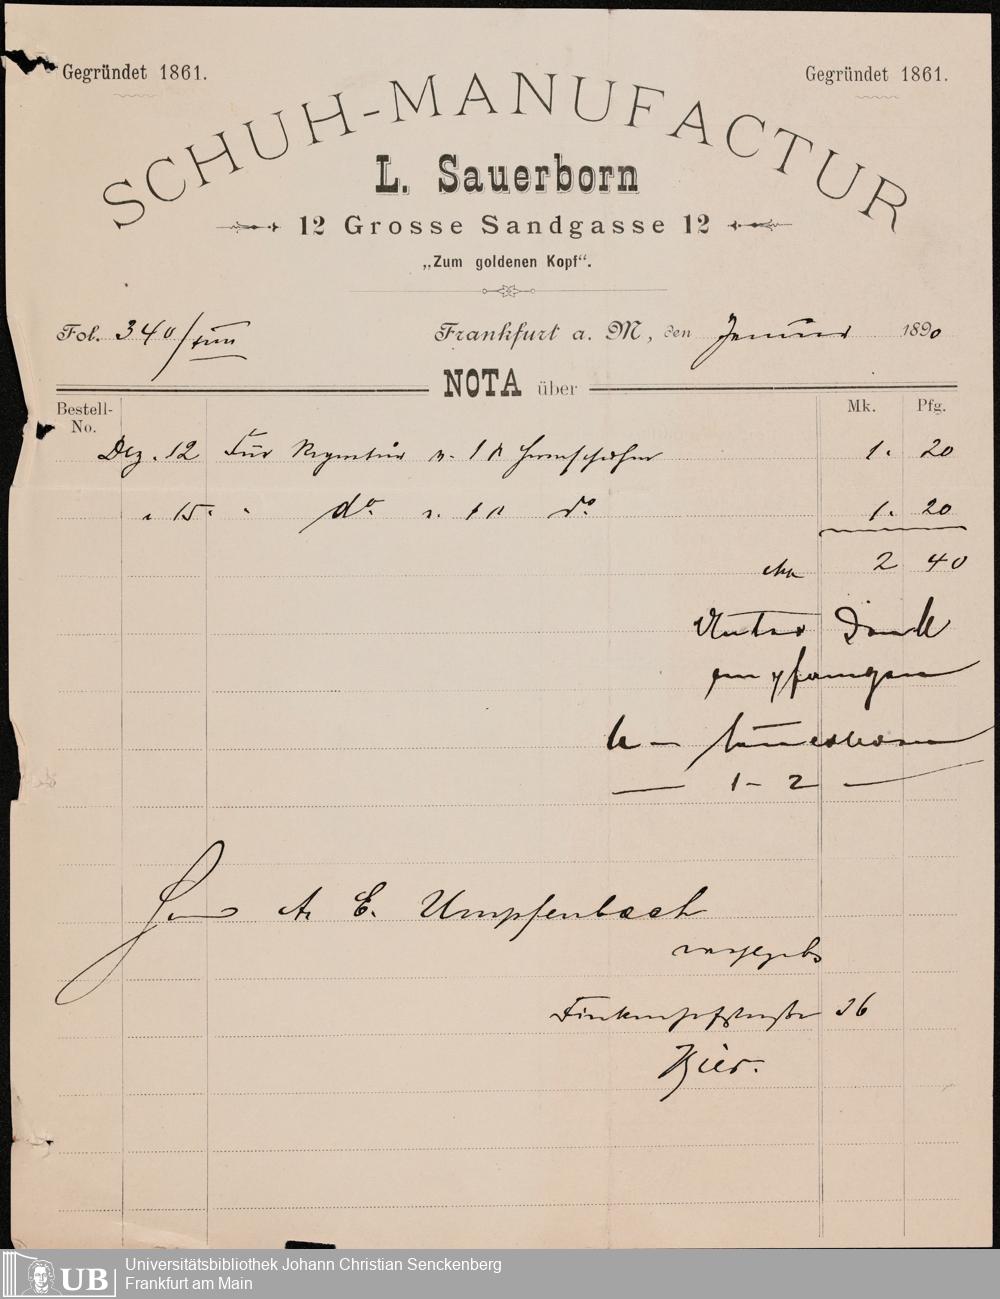 Gegründet 1861.
Gegründet 1861.
SCHUH-MANUFACTUR
L. Sauerborn
12 Grosse Sandgasse 12
„Zum goldenen Kopf“.
Fol. 340/
Frankfurt a. M., den Januar 1890
NOTA über
Bestell-No.
Mk. Pfg.
Dez. 12 Für Reparatur v. 1 P Herrnschuhen 1. 20
" 15. " do. v. 1 P do. 1. 20
Mk 2 40
Unter Dank
empfangen
Sauerborn
1 - 2
Herrn A. E. Umpfenbach
Finkenhofstraße 36
Hier.
UB
Universitätsbibliothek Johann Christian Senckenberg
Frankfurt am Main